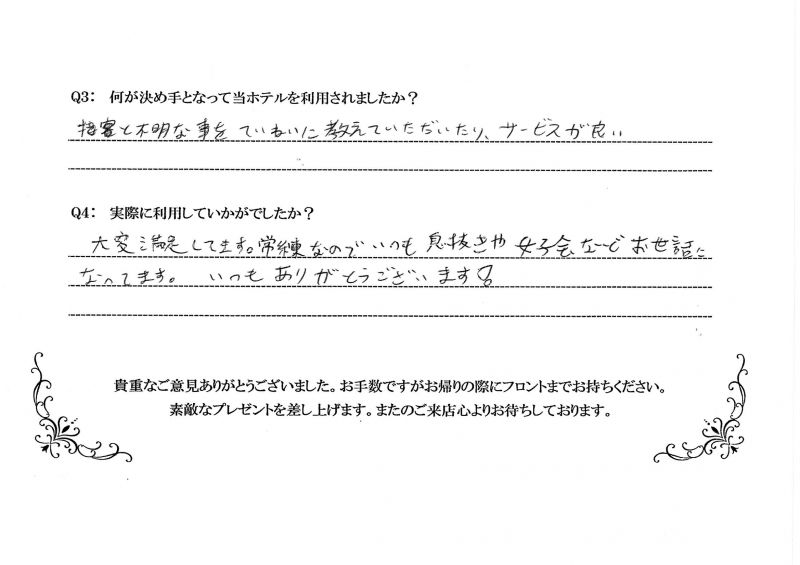 Q3: 何が決め手となって当ホテルを利用されましたか？
接客と不明な事をていねいに教えていただいたり、サービスが良い
Q4: 実際に利用していかがでしたか？
大変満足してます。常練なのでいつも息抜きや女子会などお世話に
なってます。 いつもありがとうございます！
貴重なご意見ありがとうございました。お手数ですがお帰りの際にフロントまでお持ちください。
素敵なプレゼントを差し上げます。またのご来店心よりお待ちしております。